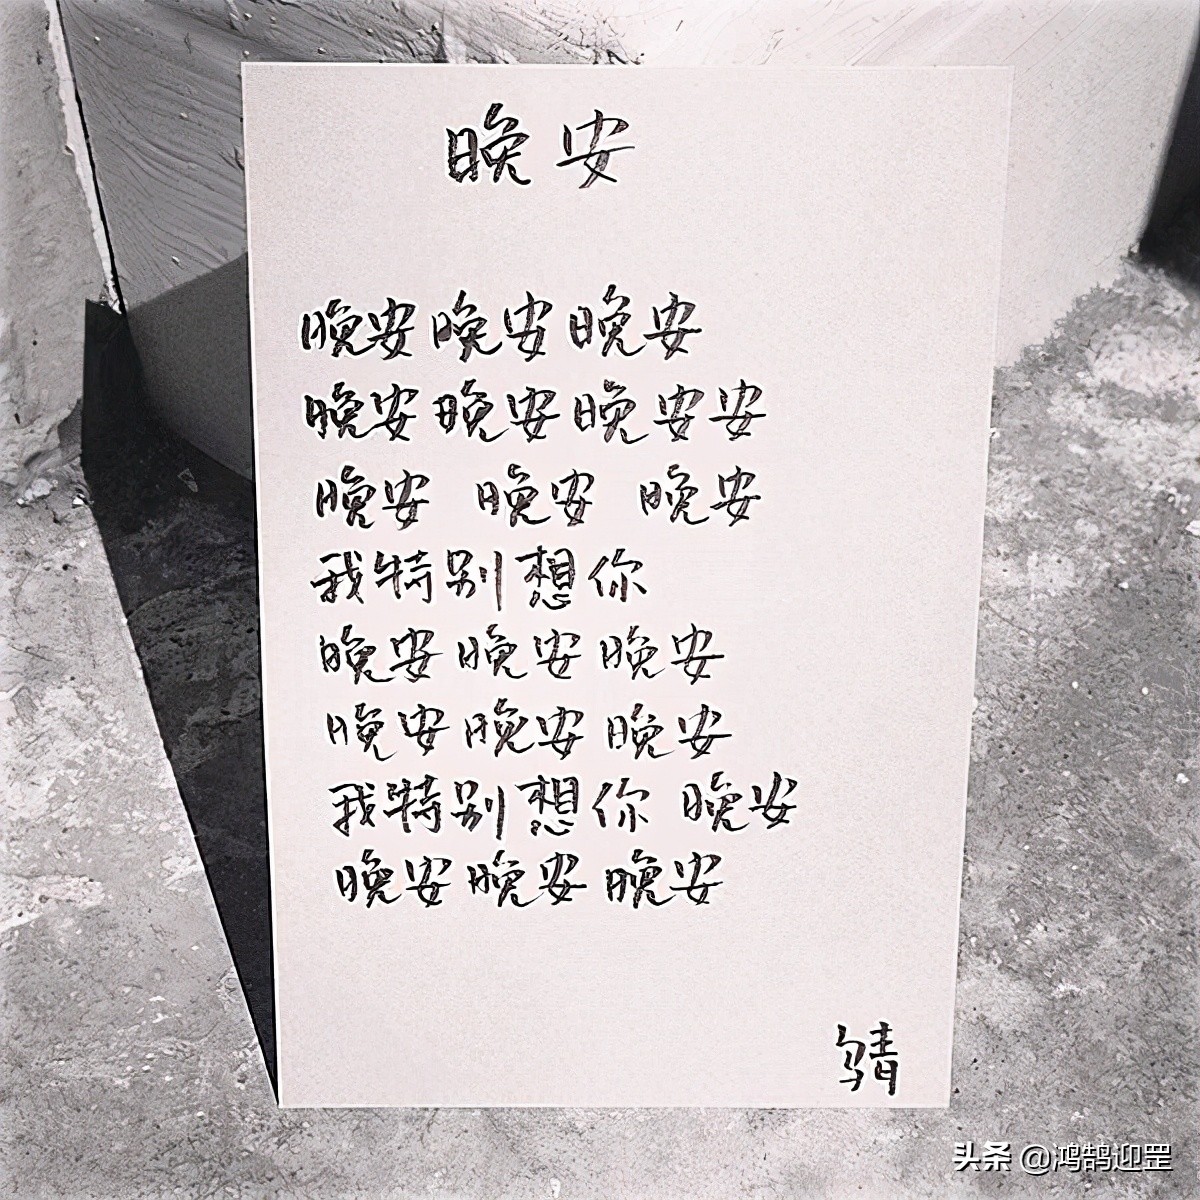 晚安
晚安晚安晚安
晚安晚安晚安安
晚安 晚安 晚安
我特别想你
晚安晚安晚安
晚安晚安晚安
我特别想你 晚安
晚安晚安晚安
头条 @鸿鹄迎罡